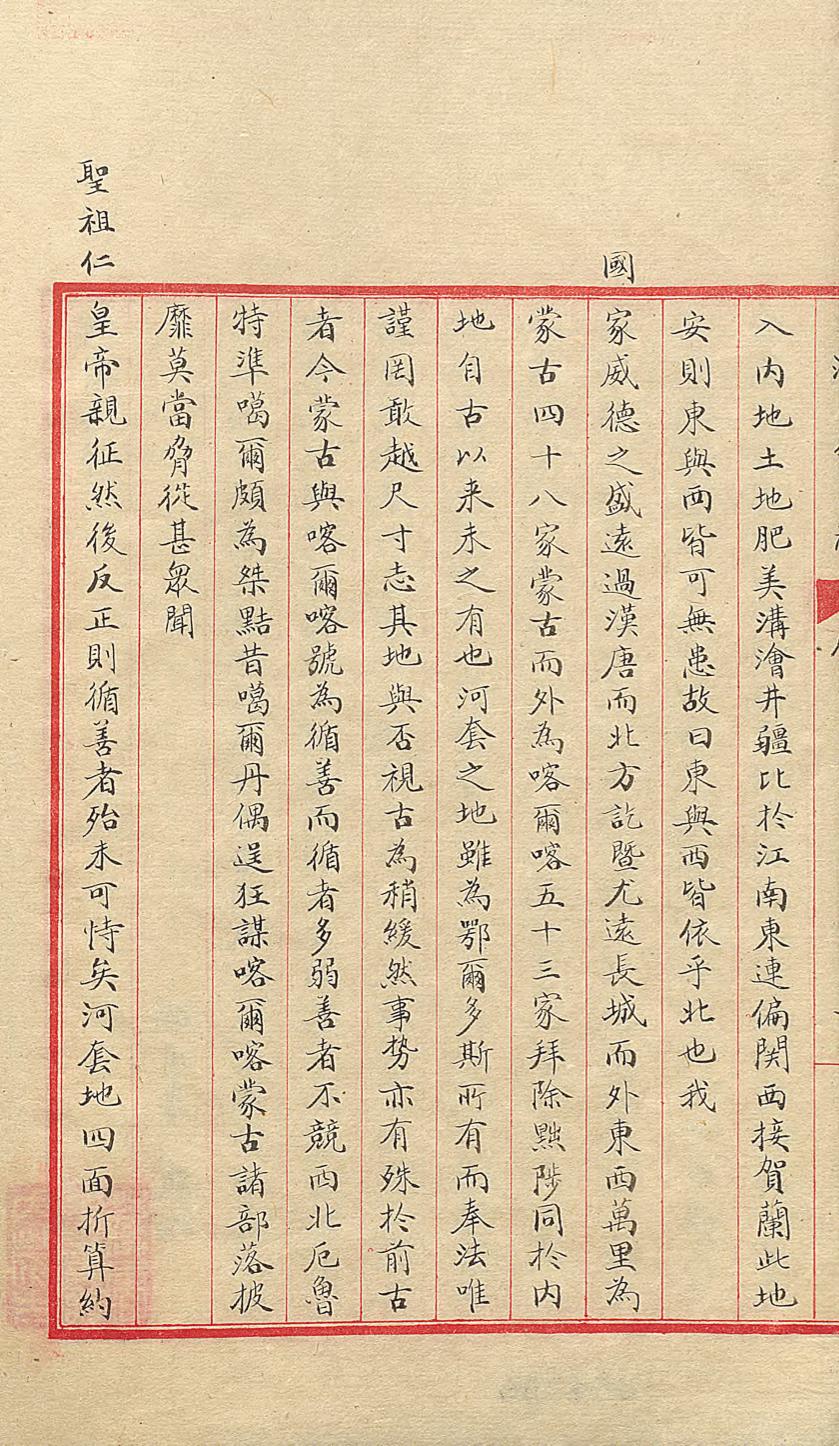 入内地土地肥美溝澮井疆比於江南東連偏関西接賀蘭此地
安則東與西皆可無患故曰東與西皆依乎北也我
國家威德之盛遠過漢唐而北方訖暨尤遠長城而外東西萬里為
蒙古四十八家蒙古而外為喀爾喀五十三家拜除黜陟同於内
地自古以来未之有也河套之地雖為鄂爾多斯所有而奉法唯
謹罔敢越尺寸志其地與否視古為稍緩然事势亦有殊於前古
者今蒙古與喀爾喀號為循善而循者多弱善者不競西北厄魯
特準噶爾頗為桀黠昔噶爾丹偶逞狂謀喀爾喀蒙古諸部落披
靡莫當脅從甚眾聞
聖祖仁皇帝親征然後反正則循善者殆未可恃矣河套地四面折算約